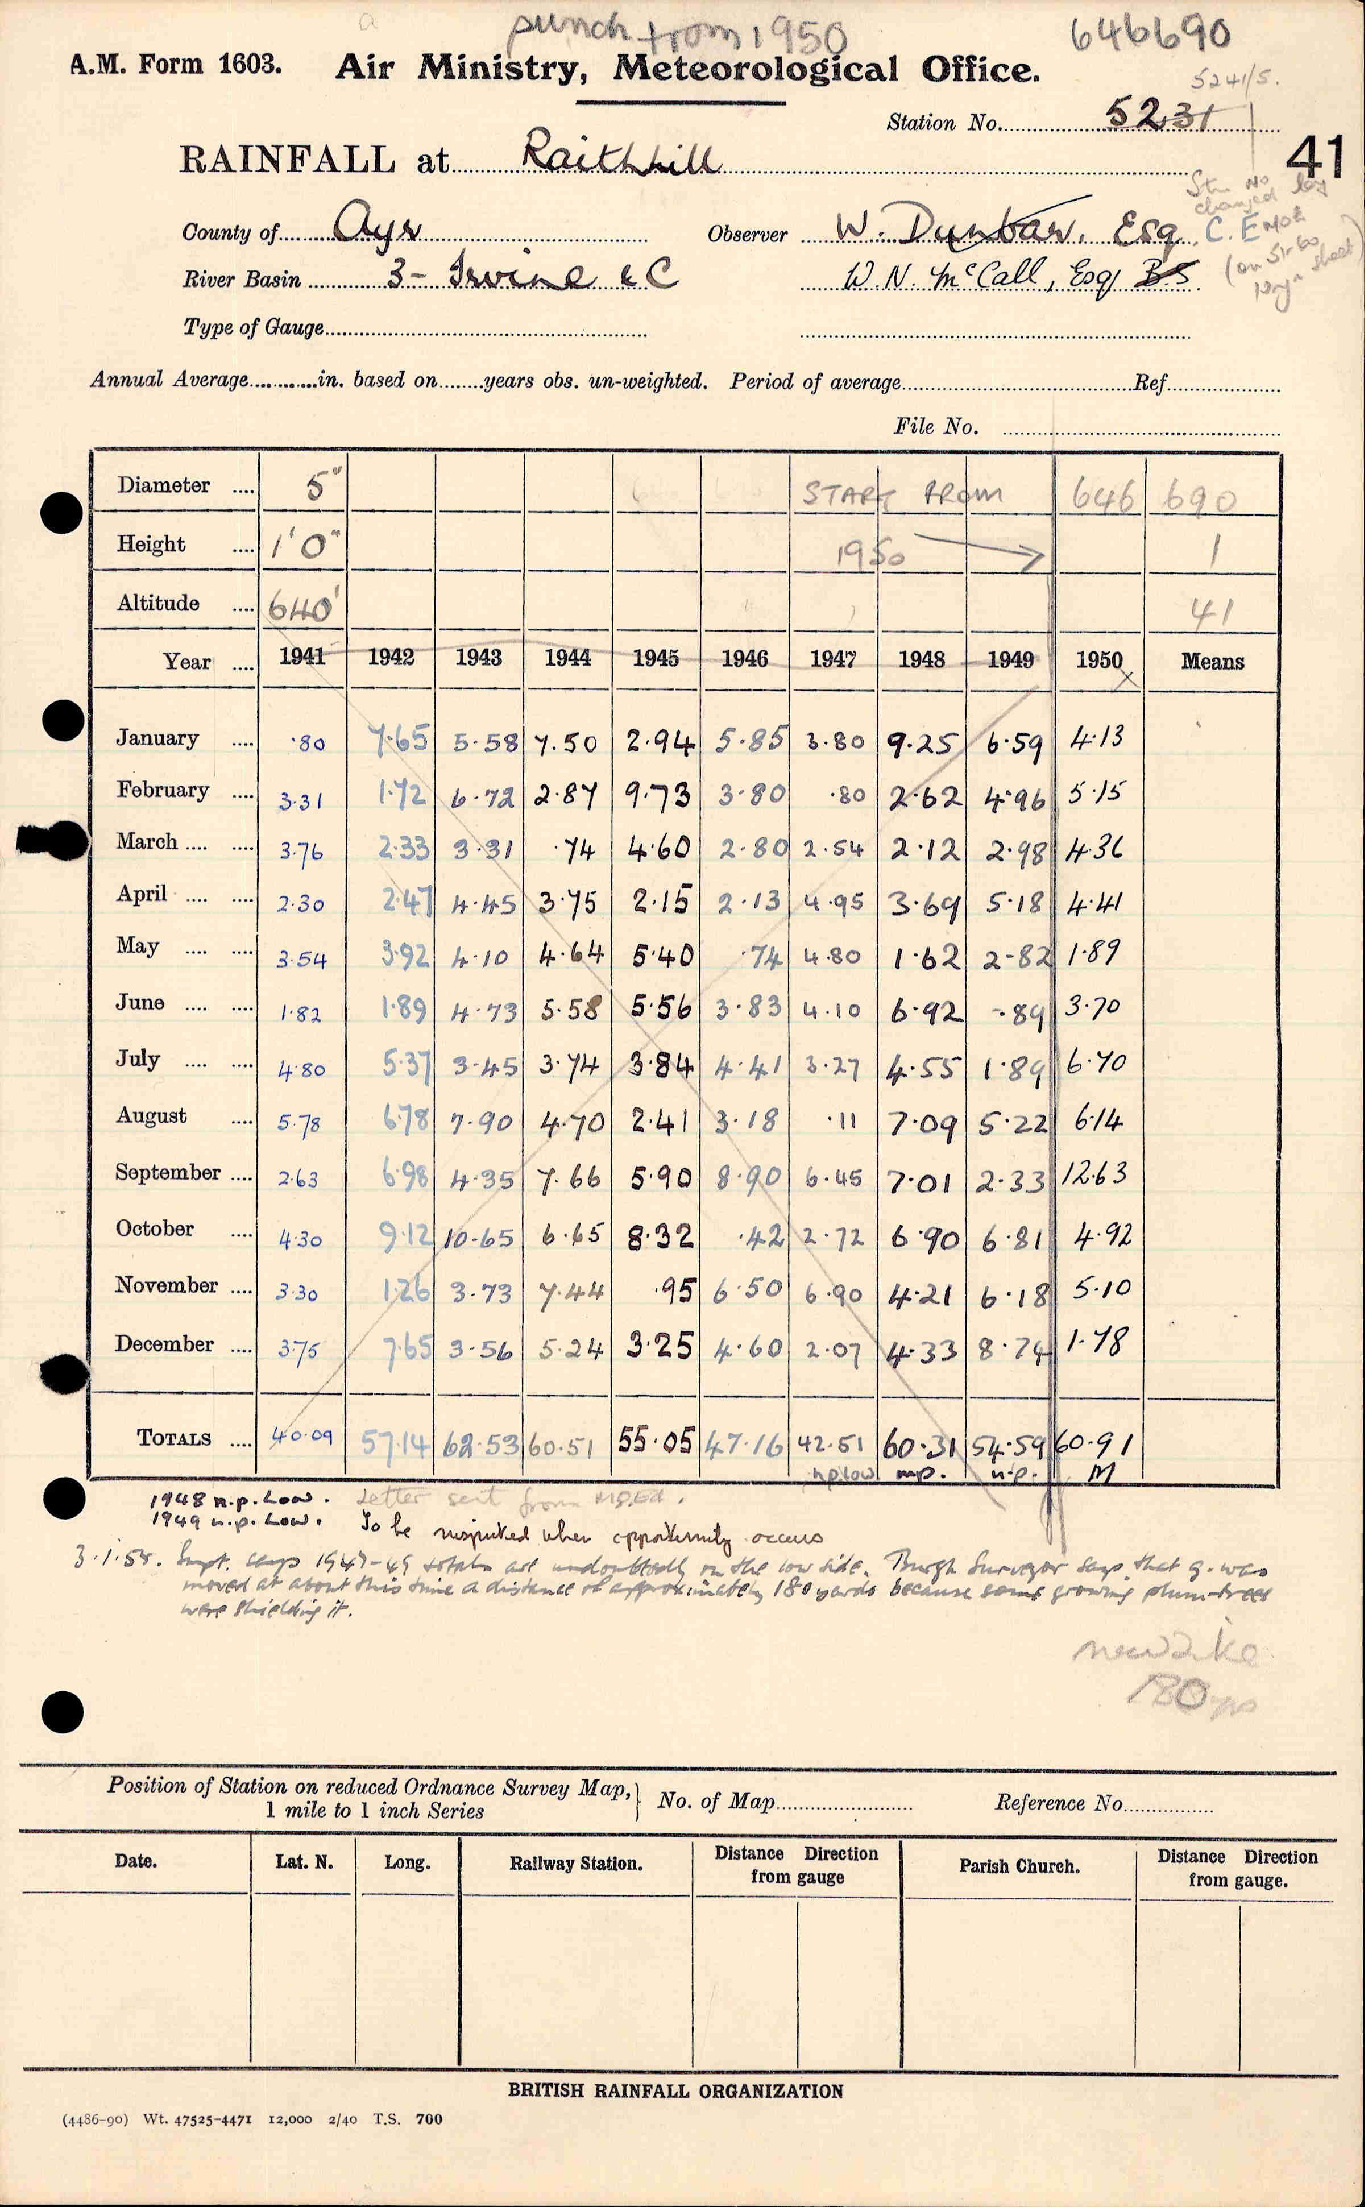 punch from 1950
646690
A.M. Form 1603. Air Ministry, Meteorological Office.
5241/5.
Station No. 5231
41
RAINFALL at Raithhill
Stn No changed by
County of Ayr Observer W. Dunbar, Esq. C. E
River Basin 3- Irvine & C W. N. McCall, Esq B.S.
Type of Gauge
Annual Average in. based on years obs. un-weighted. Period of average Ref
File No.
Diameter 5" START FROM 646 690
Height 1'0" 1950 1
Altitude 640' 41
Year 1941 1942 1943 1944 1945 1946 1947 1948 1949 1950 x Means
January ·80 7·65 5·58 7.50 2.94 5·85 3.80 9.25 6·59 4·13
February 3·31 1·72 6·72 2·87 9·73 3·80 ·80 2·62 4·96 5·15
March 3·76 2·33 3·31 ·74 4·60 2·80 2·54 2·12 2·98 4·36
April 2·30 2·47 4·45 3·75 2·15 2·13 4·95 3·69 5·18 4·41
May 3·54 3·92 4·10 4·64 5·40 ·74 4·80 1·62 2·82 1·89
June 1·82 1·89 4·73 5·58 5·56 3·83 4·10 6·92 ·89 3·70
July 4·80 5·37 3·45 3·74 3·84 4·41 3·27 4·55 1·89 6·70
August 5·78 6·78 7·90 4·70 2·41 3·18 ·11 7·09 5·22 6·14
September 2·63 6·98 4·35 7·66 5·90 8·90 6·45 7·01 2·33 12·63
October 4·30 9·12 10·65 6·65 8·32 ·42 2·72 6·90 6·81 4·92
November 3·30 1·26 3·73 7·44 ·95 6·50 6·90 4·21 6·18 5·10
December 3·75 7·65 3·56 5·24 3·25 4·60 2·07 4·33 8·74 1·78
TOTALS 40·09 57·14 62·53 60·51 55·05 47·16 42·51 60·31 54·59 60·91
n.p. low n.p. n.p. M
1948 n.p. Low. Letter sent from
1949 n.p. Low. To be inspected when opportunity occurs
3·1·55. Supt. says 1947-49 totals are undoubtedly on the low side. Burgh Surveyor says that g. was
moved at about this time a distance of approximately 180 yards because some growing plum-trees
were shielding it.
new site
180 yds
Position of Station on reduced Ordnance Survey Map, 1 mile to 1 inch Series No. of Map Reference No.
Date. Lat. N. Long. Railway Station. Distance Direction from gauge Parish Church. Distance Direction from gauge.
BRITISH RAINFALL ORGANIZATION
(4486-90) Wt. 47525-4471 12,000 2/40 T.S. 700